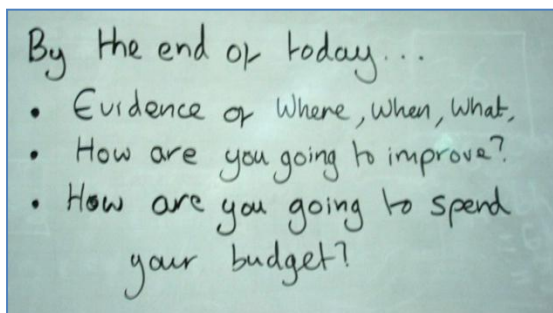 By the end of today...
• Evidence of Where, When, What,
• How are you going to improve?
• How are you going to spend
your budget?